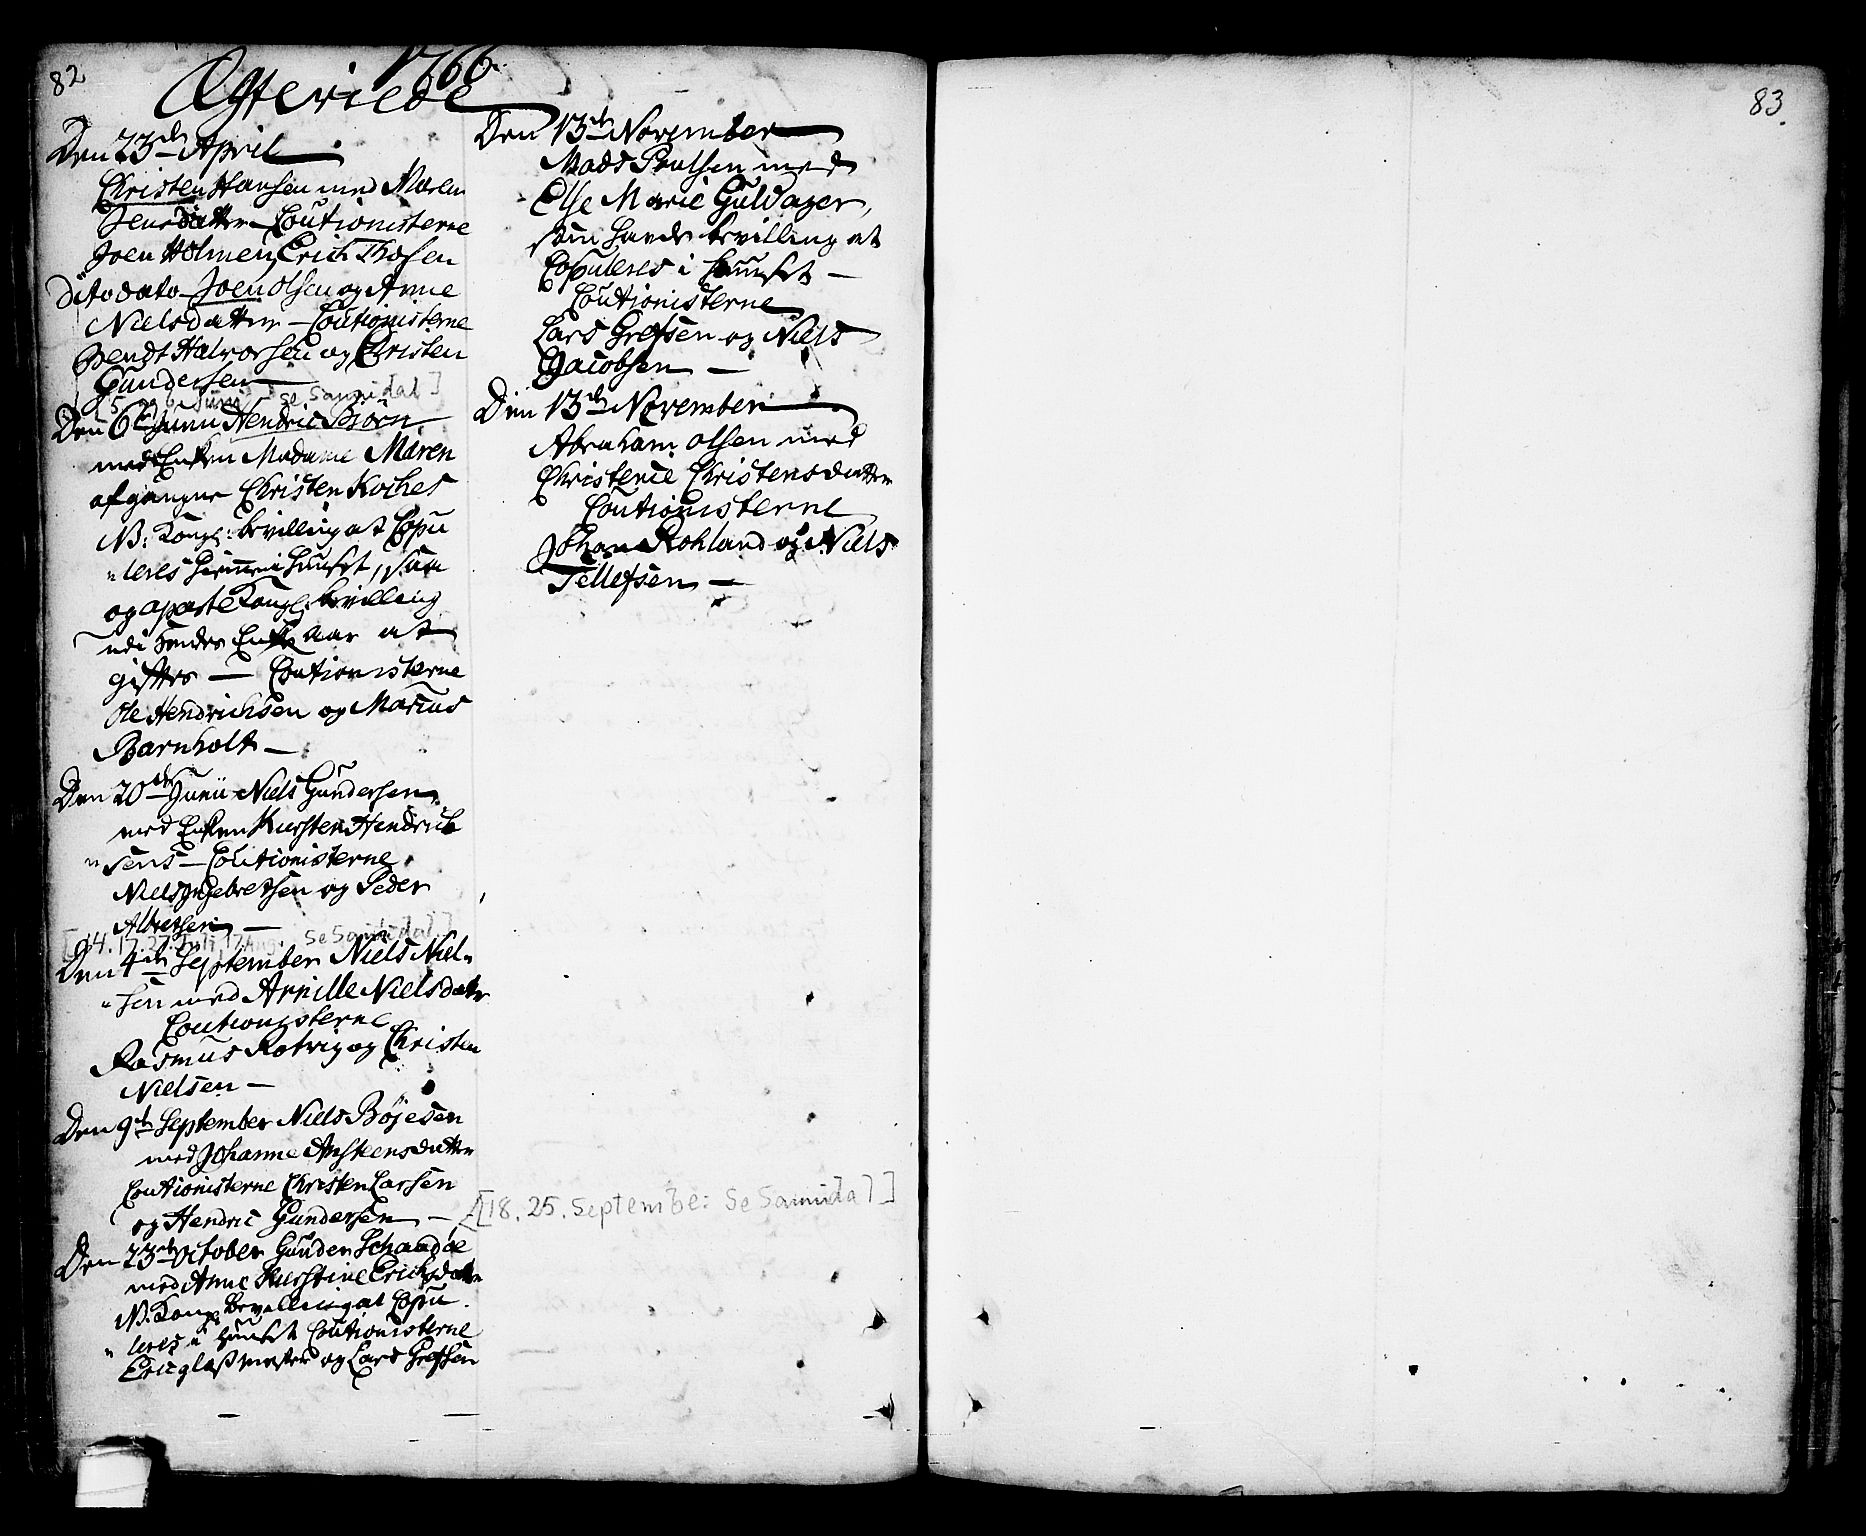 82
1766.
Ægteviede
Den 23de April
Christen Hansen med Maren
Jensdatter Coutionisterne
Joen Holmen, Erich
dito dato Joen Olsen og Anne
Nielsdatter – Coutionisterne
Bendt Halvorsen og Christen
Gundersen
[5 og 6 Juni se Samidal]
Den 6te Junii Hendric Biörn
med Enken Madame Maren
afgangne Christen Koches
NB: Kongl: bevilling at Copu
"leres hiemme i Huuset, saa
og aparte Kongl: bevilling
udi hendes Enke aar at
giftes — Coutionisterne
Ole Hendrichsen og Marius
Barnholt –
Den 20de Junii Niels Gundersen
med Enken Kirsten Hendrich
"sens – Coutionisterne
Niels Ingebretsen og Peder
Albretsen –
[14. 17. 27. Juli, 17 Aug. Se Samidal]
Den 4de September Niels Niel„
"sen med Arnille Nielsdatr
Coutionisterne
Rasmus Rotvig og Christen
Nielsen –
Den 9de September Niels Böjesen
med Johanne Ansteensdatter
Coutionisterne Christen Larsen
og Hendric Gundersen –
Den 23de October Gunder Schaadoe
med Anne Kirstine Erichsdatr
NB. Kongl: Bevelling at Copu
"leres i Huuset Coutionisterne
Eric glasmester og Lars Grefsen
Den 13de November
Mads Poulsen med
Else Marie Guldager,
som havde bevilling at
Copuleres i Huuset –
Coutionisterne
Lars Grefsen og Niels
Jacobsen –
Den 13de November
Abraham Olsen med
Christence Christensdatter
Coutionisterne
Johan Rohland og Niels
Tellefsen –
[18. 25. September: Se Samidal]
83.